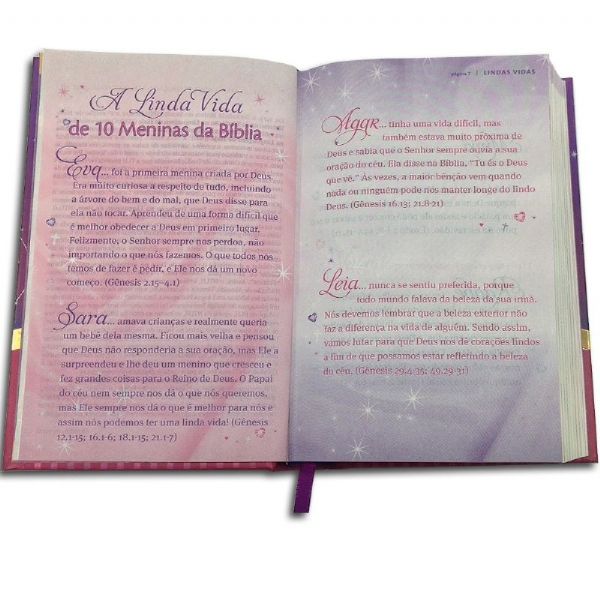 A Linda Vida
de 10 Meninas da Bíblia
Eva... foi a primeira menina criada por Deus.
Era muito curiosa a respeito de tudo, incluindo
a árvore do bem e do mal, que Deus disse para
ela não tocar. Aprendeu de uma forma difícil que
é melhor obedecer a Deus em primeiro lugar.
Felizmente, o Senhor sempre nos perdoa, não
importando o que nós fazemos. O que todos nós
temos de fazer é pedir, e Ele nos dá um novo
começo. (Gênesis 2.15–4.1)
Sara... amava crianças e realmente queria
um bebê dela mesma. Ficou mais velha e pensou
que Deus não responderia a sua oração, mas Ele a
surpreendeu e lhe deu um menino que cresceu e
fez grandes coisas para o Reino de Deus. O Papai
do céu nem sempre nos dá o que nós queremos,
mas Ele sempre nos dá o que é melhor para nós e
assim nós podemos ter uma linda vida! (Gênesis
12.1-15; 16.1-6; 18.1-15; 21.1-7)
página 7 | LINDAS VIDAS
Agar... tinha uma vida difícil, mas
também estava muito próxima de
Deus e sabia que o Senhor sempre ouvia a sua
oração do céu. Ela disse na Bíblia, "Tu és o Deus
que vê." Às vezes, a maior bênção vem quando
nada ou ninguém pode nos manter longe do lindo
Deus. (Gênesis 16.13; 21.8-21)
Leia... nunca se sentiu preferida, porque
todo mundo falava da beleza da sua irmã.
Nós devemos lembrar que a beleza exterior não
faz a diferença na vida de alguém. Sendo assim,
vamos lutar para que Deus nos dê corações lindos
a fim de que possamos estar refletindo a beleza
do céu. (Gênesis 29.4-35; 49.29-31)